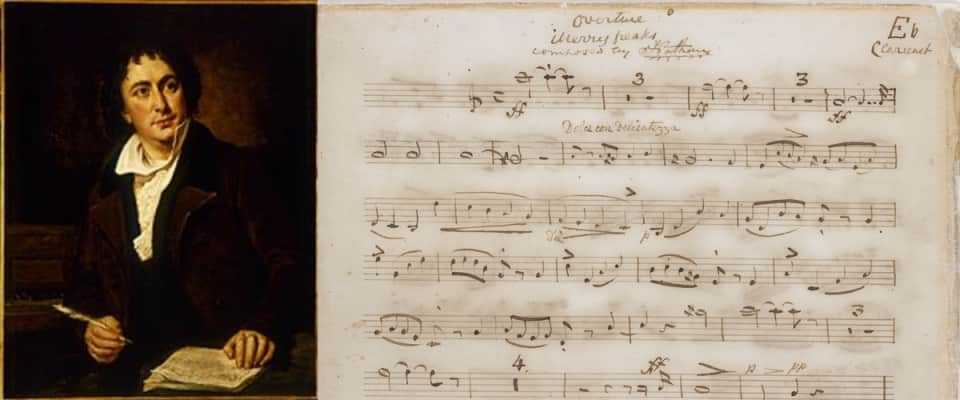 Overture
Merry Freaks
composed by I Nathan
Eb
Clarionet
3
3
ff
ff
ff
Dolce con Delicatezza
p
3
4.
ff
p
pp